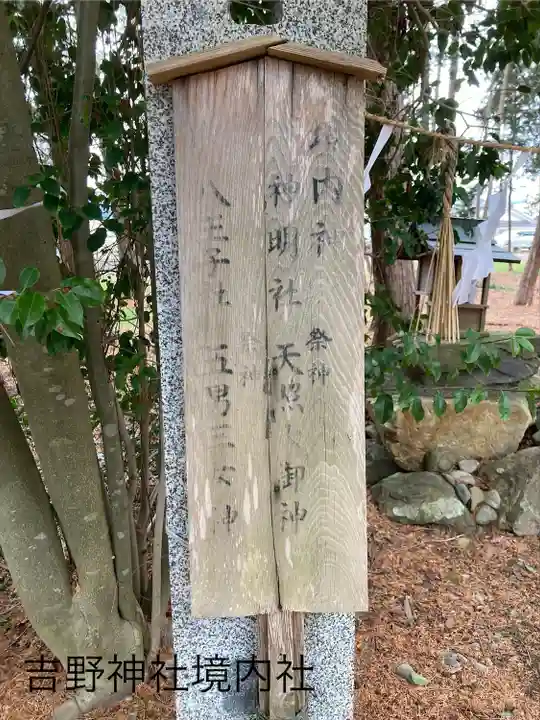 境内神
神明社 祭神 天照大御神
八王子社 祭神 五男三女神
吉野神社境内社